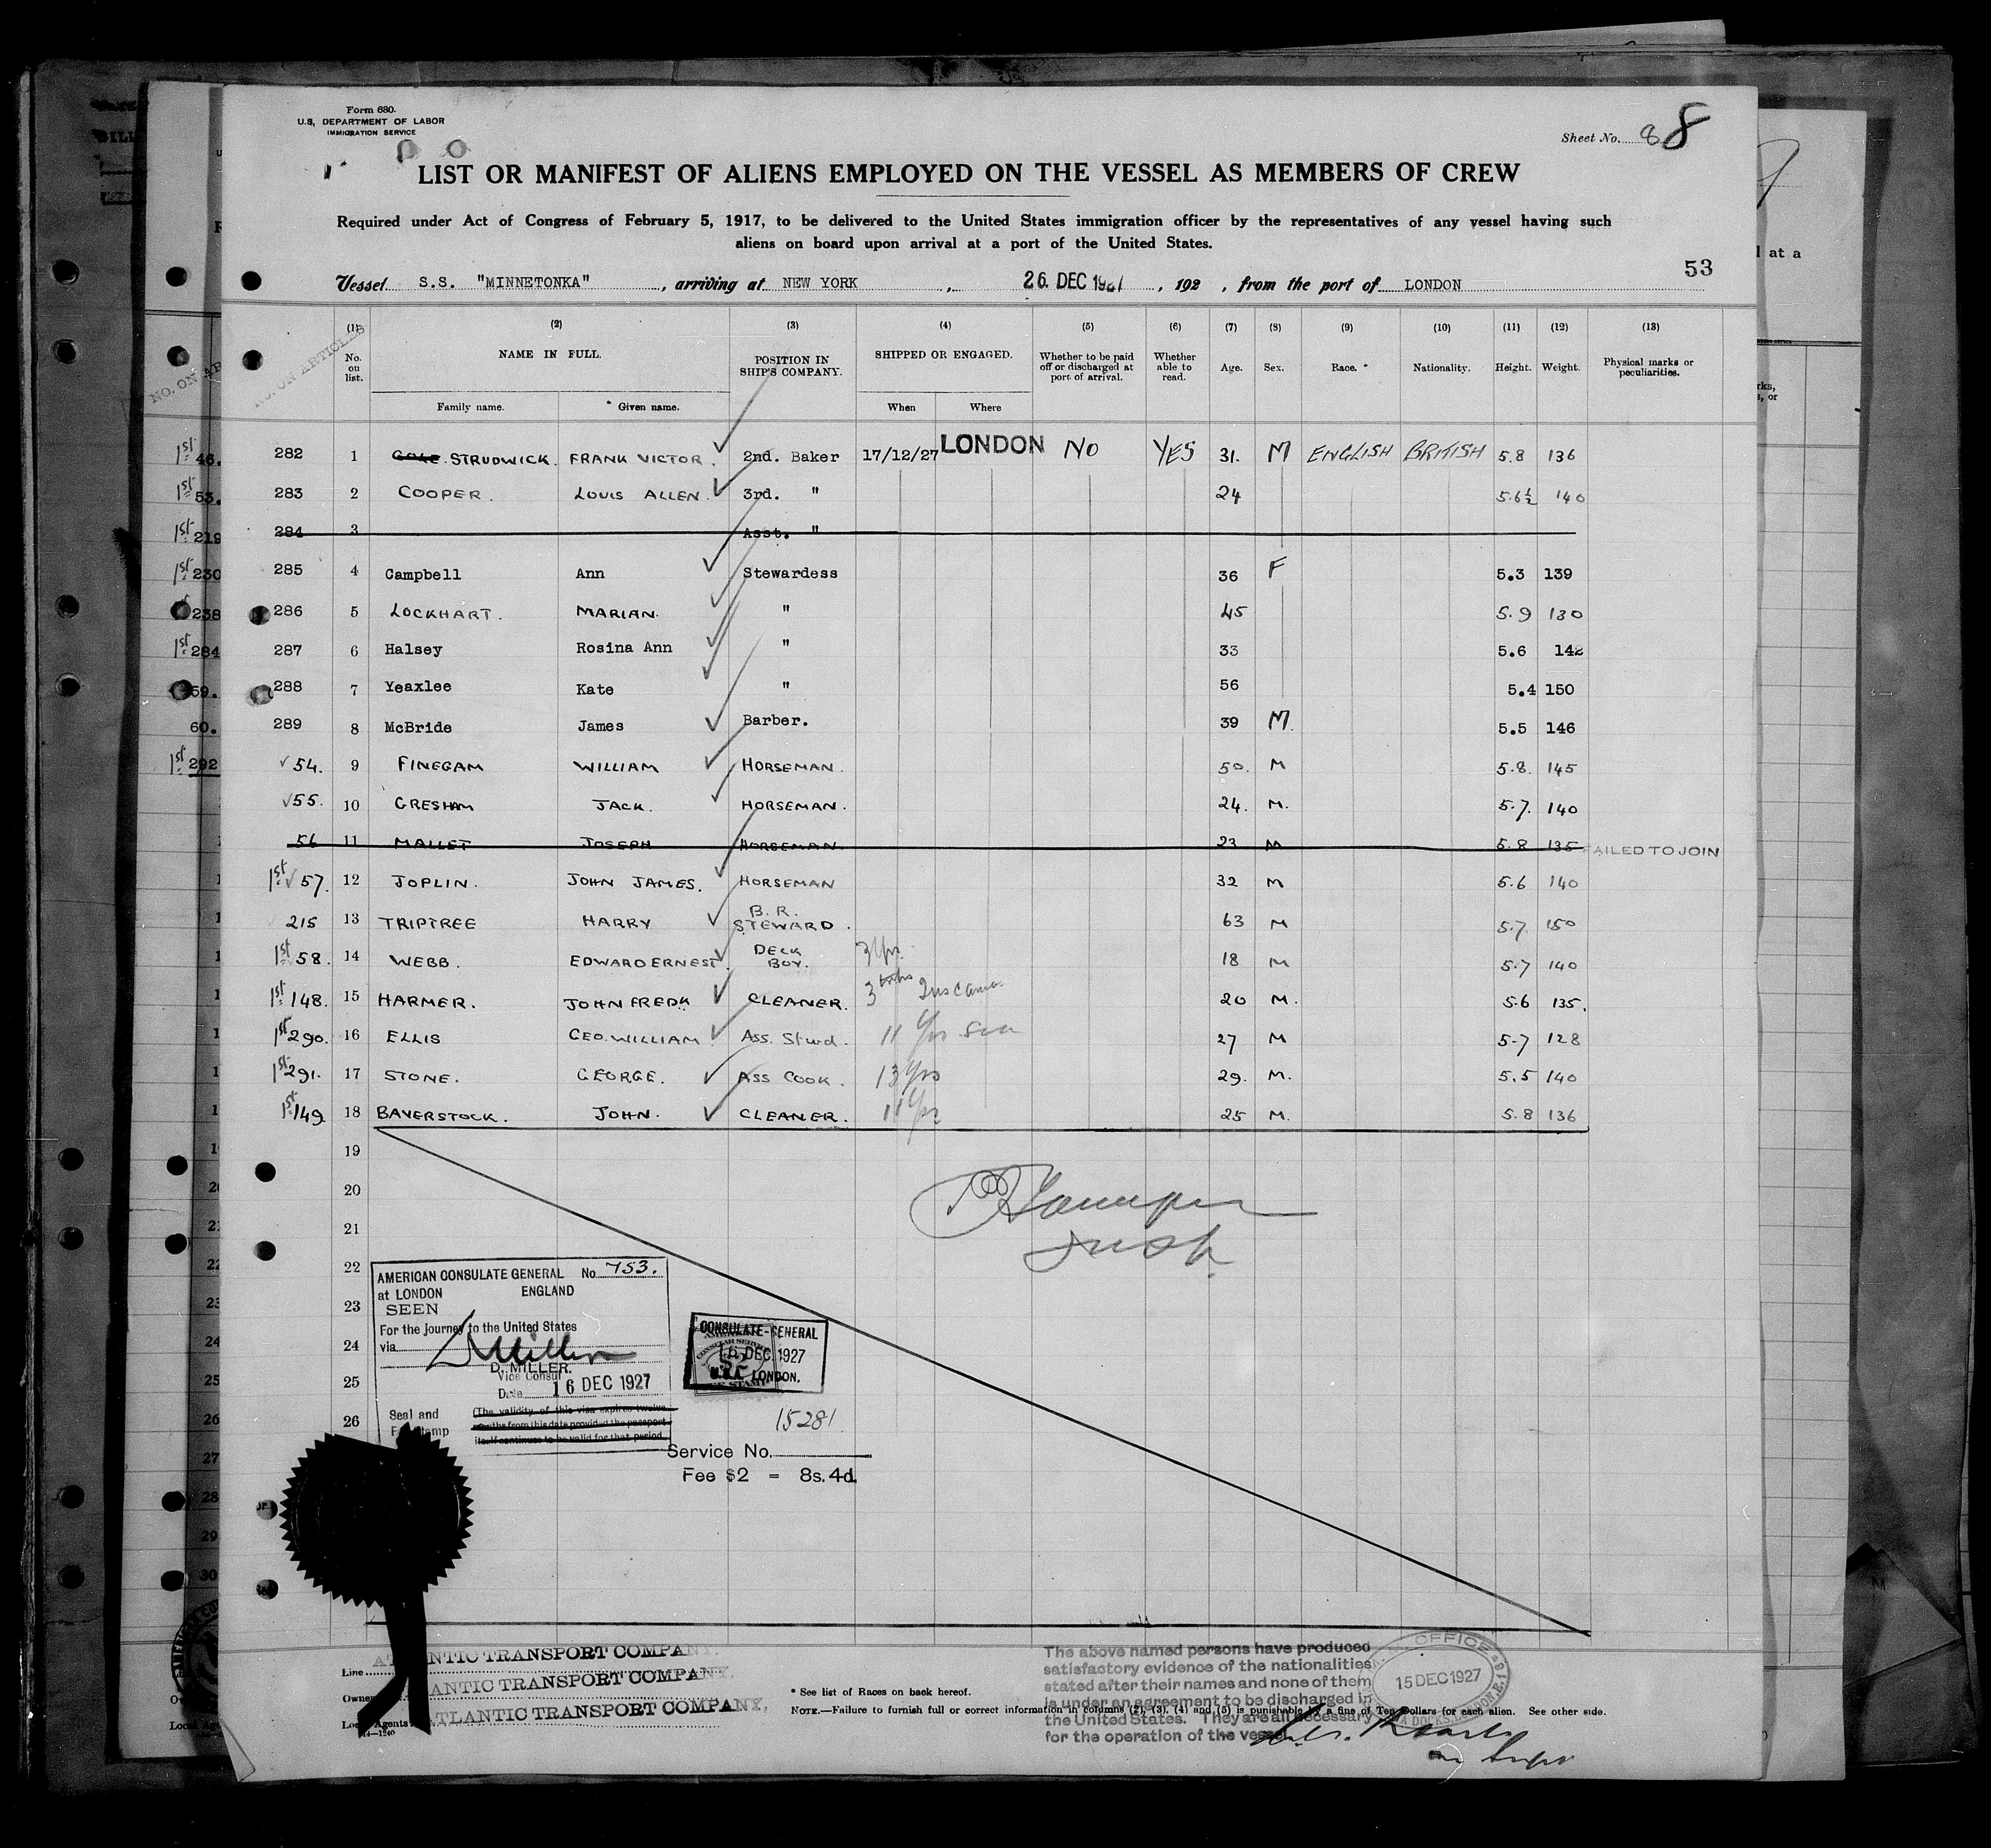 Form 680.
U.S. DEPARTMENT OF LABOR
IMMIGRATION SERVICE
Sheet No. 8 8
LIST OR MANIFEST OF ALIENS EMPLOYED ON THE VESSEL AS MEMBERS OF CREW
Required under Act of Congress of February 5, 1917, to be delivered to the United States immigration officer by the representatives of any vessel having such
aliens on board upon arrival at a port of the United States.
53
Vessel S.S. "MINNETONKA", arriving at NEW YORK, 26 DEC 1927, 192 , from the port of LONDON
NO. ON ARTICLES
(1) (2) (3) (4) (5) (6) (7) (8) (9) (10) (11) (12) (13)
No. on list. NAME IN FULL. POSITION IN SHIP'S COMPANY. SHIPPED OR ENGAGED. Whether to be paid off or discharged at port of arrival. Whether able to read. Age. Sex. Race. * Nationality. Height. Weight. Physical marks or peculiarities.
Family name. Given name. When Where
282 1 STRUDWICK. FRANK VICTOR. 2nd. Baker 17/12/27 LONDON NO YES 31. M ENGLISH BRITISH 5.8 136
283 2 COOPER. LOUIS ALLEN. 3rd. " 24 5.6½ 140
284 3 Asst. "
285 4 Campbell Ann Stewardess 36 F 5.3 139
286 5 LOCKHART. MARIAN. " 45 5.9 130
287 6 Halsey Rosina Ann " 33 5.6 142
288 7 Yeaxlee Kate " 56 5.4 150
289 8 McBride James Barber. 39 M. 5.5 146
54. 9 FINEGAM WILLIAM HORSEMAN. 50. M 5.8. 145
55. 10 GRESHAM JACK. HORSEMAN. 24. M. 5.7. 140
56 11 MALLET JOSEPH HORSEMAN. 23 M 5.8 135 FAILED TO JOIN
1st 57. 12 JOPLIN. JOHN JAMES. HORSEMAN 32 M 5.6 140
215 13 TRIPTREE HARRY B.R. STEWARD. 63 M 5.7. 150
1st 58. 14 WEBB. EDWARD ERNEST DECK BOY. 3 Yrs. 18 M 5.7 140
1st 148. 15 HARMER. JOHN FREDK CLEANER. 3 trips Tuscania 20 M. 5.6 135.
1st 290. 16 ELLIS GEO. WILLIAM. Ass. Stwd. 11 Yrs Sea 27 M 5-7 128
1st 291. 17 STONE. GEORGE. ASS COOK. 13 Yrs 29. M. 5.5 140
1st 149 18 BAVERSTOCK. JOHN. CLEANER. 11 Yrs 25 M. 5.8 136
19
20
21
22
23
24
25
26
AMERICAN CONSULATE GENERAL No. 753.
at LONDON ENGLAND
SEEN
For the journey to the United States
via
D. MILLER.
Vice Consul
Date 16 DEC 1927
Seal and
Fee Stamp
(The validity of this visa expires twelve
months from this date provided the passport
itself continues to be valid for that period.
CONSULATE-GENERAL
16 DEC 1927
U.S.A. LONDON.
15281
Service No.
Fee $2 = 8s. 4d.
Line ATLANTIC TRANSPORT COMPANY.
Owners ATLANTIC TRANSPORT COMPANY.
Local Agents ATLANTIC TRANSPORT COMPANY.
14—1240
* See list of Races on back hereof.
NOTE.—Failure to furnish full or correct information in columns (2), (3), (4) and (5) is punishable by a fine of Ten Dollars for each alien. See other side.
The above named persons have produced
satisfactory evidence of the nationalities
stated after their names and none of them
is under an agreement to be discharged in
the United States. They are all necessary
for the operation of the vessel
OFFICE
15 DEC 1927
DOCKS, LONDON E.16